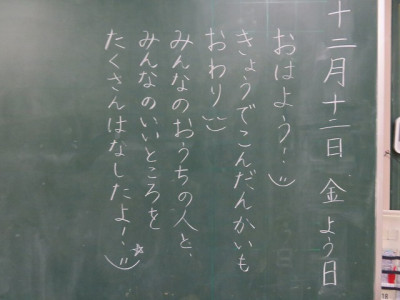 十二月十二日 金よう日
おはよう！
きょうでこんだんかいも
おわり
みんなのおうちの人と、
みんなのいいところを
たくさんはなしたよー！